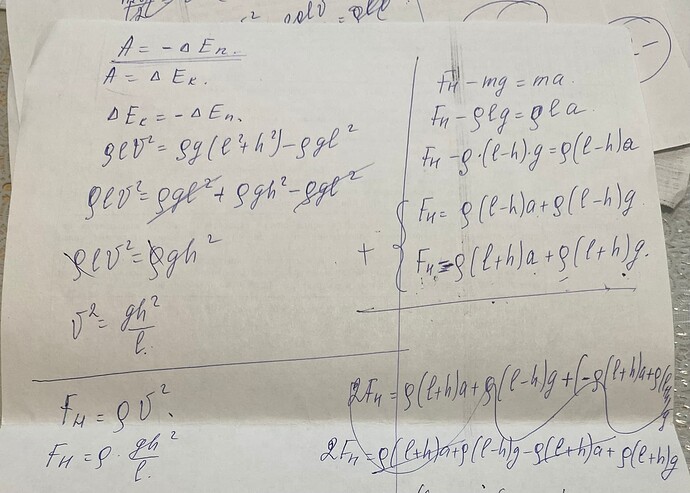 A = -Δ Eп.
A = Δ Eк.
Δ Eк = -Δ Eп.
ρℓv² = ρg(ℓ²+h²)-ρgℓ²
ρℓv² = ρgℓ² + ρgh² - ρgℓ²
ρℓv² = ρgh²
v² = gh²/ℓ.
Fн = ρv².
Fн = ρ · gh²/ℓ.
Fн - mg = ma.
Fн - ρℓg = ρℓa.
Fн - ρ·(ℓ-h)·g = ρ(ℓ-h)a
Fн = ρ(ℓ-h)a + ρ(ℓ-h)g
+ Fн = ρ(ℓ+h)a + ρ(ℓ+h)g.
2Fн = ρ(ℓ+h)a + ρ(ℓ-h)g + (-ρ(ℓ+h)a + ρ(ℓ+h)g
2Fн = ρ(ℓ+h)a + ρ(ℓ-h)g - ρ(ℓ+h)a + ρ(ℓ+h)g